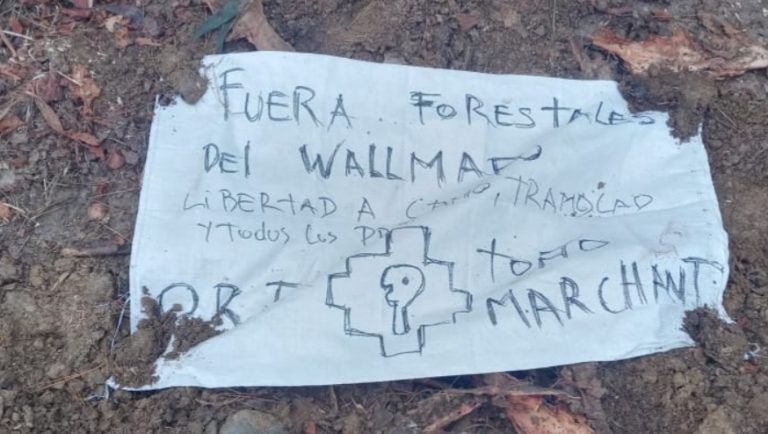 FUERA.. FORESTALES
Del WALLMAP
LIBERTAD A TRAMOLAO
Y TODOS LOS PP
ORT TOÑO
MARCHANT